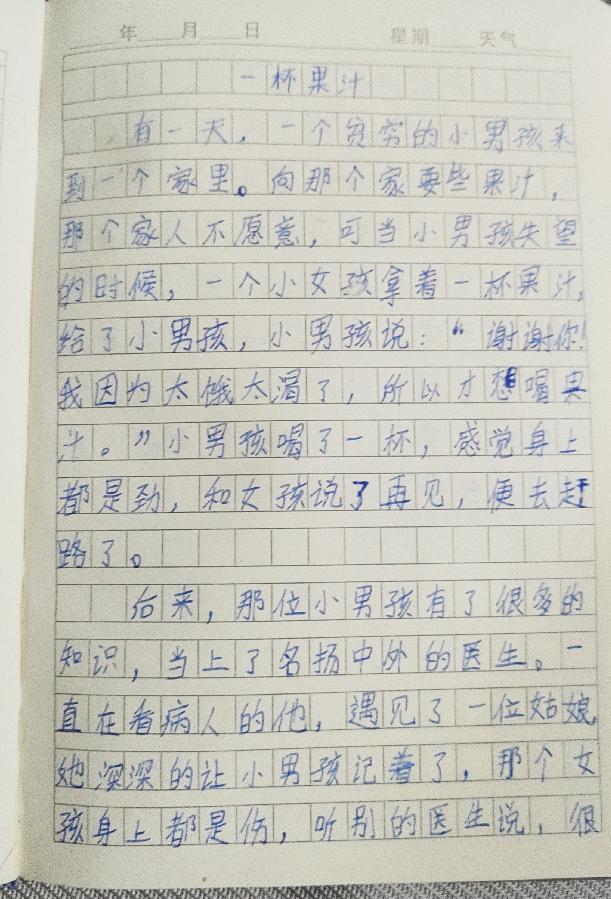 年 月 日 星期 天气
一杯果汁
有一天，一个贫穷的小男孩来
到一个家里。向那个家要些果汁，
那个家人不愿意，可当小男孩失望
的时候，一个小女孩拿着一杯果汁，
给了小男孩，小男孩说：“谢谢你！
我因为太饿太渴了，所以才想喝果
汁。”小男孩喝了一杯，感觉身上
都是劲，和女孩说了再见，便去赶
路了。
后来，那位小男孩有了很多的
知识，当上了名扬中外的医生。一
直在看病人的他，遇见了一位姑娘
她深深的让小男孩记着了，那个女
孩身上都是伤，听别的医生说，很